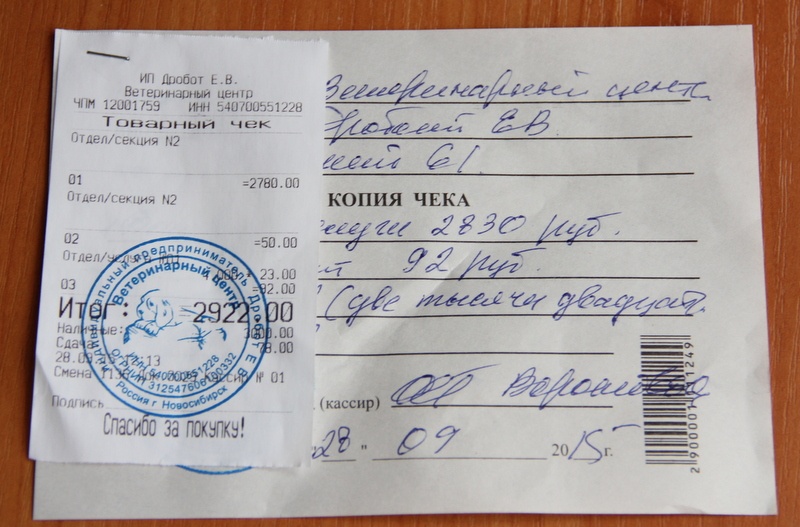 ИП Дробот Е.В.
Ветеринарный центр
ЧПМ 12001759 ИНН 540700551228
Товарный чек
Отдел/секция N2
01 =2780.00
Отдел/секция N2
02 =50.00
Отдел/
* 23.00
03 =92.00
Итог: 2922.00
Наличные: 3000.00
Сдача 78.00
28.09
Смена
№ 01
Подпись
Спасибо за покупку!
Индивидуальный предприниматель Дробот Е.В.
Ветеринарный центр
ИНН 540700551228
Россия г Новосибирск
центр
ЕВ.
61.
КОПИЯ ЧЕКА
2830 руб.
92 руб.
(две тысячи двадцат
(кассир)
28 " 09 2015 г.